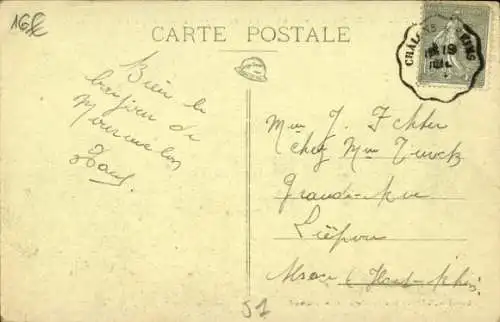 168c
CARTE POSTALE
CHÂLONS
18
Bien le
bonjour de
Mourmelon
Mme J. Fchter
chez Mme Turck
Grande-Rue
Lièpvre
Alsace (Haut-Rhin)
51